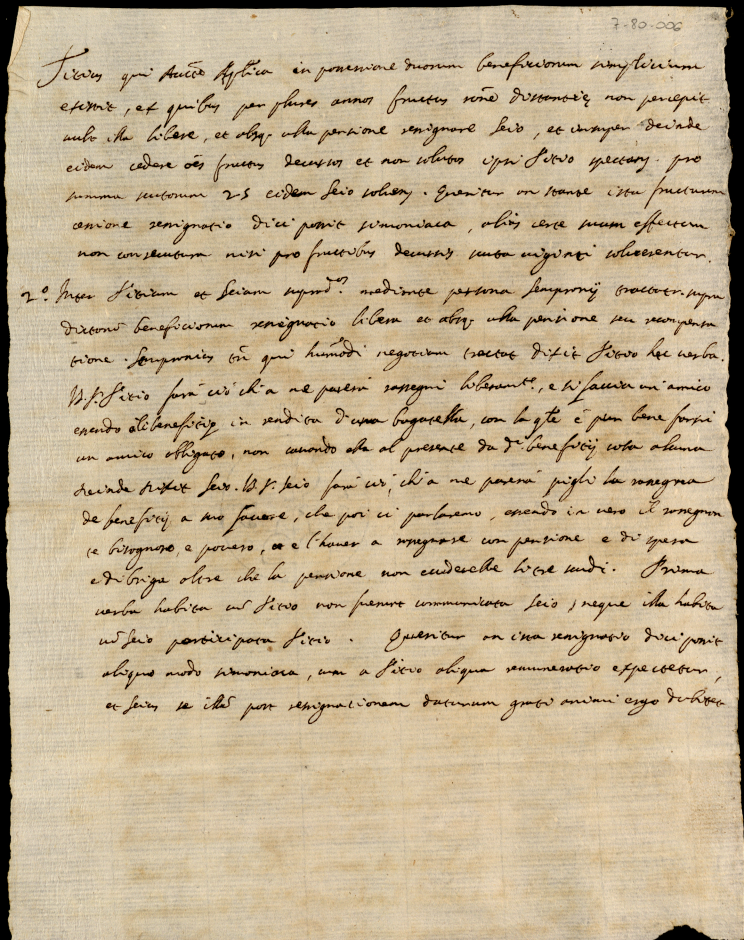 7-80-006
Titius qui Aucte Aplica in possessione duorum beneficiorum simplicium
existit, ex quibus per plures annos fructus rone distantię non percepit
vult illa libere, et absq. ulla pensione resignare Seio, et insuper deinde
eidem cedere oēs fructus decursos et non solutos ipsi Titio spectans. pro
summa scutorum 25 eidem Seio solvens. Queritur an stante ista fructuum
cessione resignatio dici possit simoniaca, alias certe suum effectum
non consecutura nisi pro fructibus decursis scuta viginti solverentur.
2.º Inter Titium et Seium mediante persona Sempronij tractatr. supra
dictorū beneficiorum resignatio libera et absq. ulla pensione seu recompensa
tione. Sempronius tn̄ qui humōdi negotium tractat dixit Titio hec verba.
V.S. Titio farà ciò ch'a me parerà rassegni liberamte., e si faccia un amico
essendo li benefitij in rendita d'una bagatella, con la qle è pur bene farsi
un amico obligato, non cavando ella al presente da di. benefitij cosa alcuna
deinde dixit Seio. V.S. Seio farà ciò, ch'a me parerà pigli la rassegna
de benefitij a suo favore, che poi ci parlaremo, essendo in vero il rassegnan
te bisognoso, e povero, e l'haver a rassegnare con pensione e di spesa
e di briga oltre che la pensione non eccederebbe li tre scudi. Prima
verba habita cū Titio non fuerunt communicata Seio, neque illa habita
cū Seio participata Titio. Queritur an ista resignatio dici possit
aliquo modo simoniaca, cum a Titio aliqua remuneratio expectetur,
et Seius se illā post resignationem daturum grati animi ergo dubitet